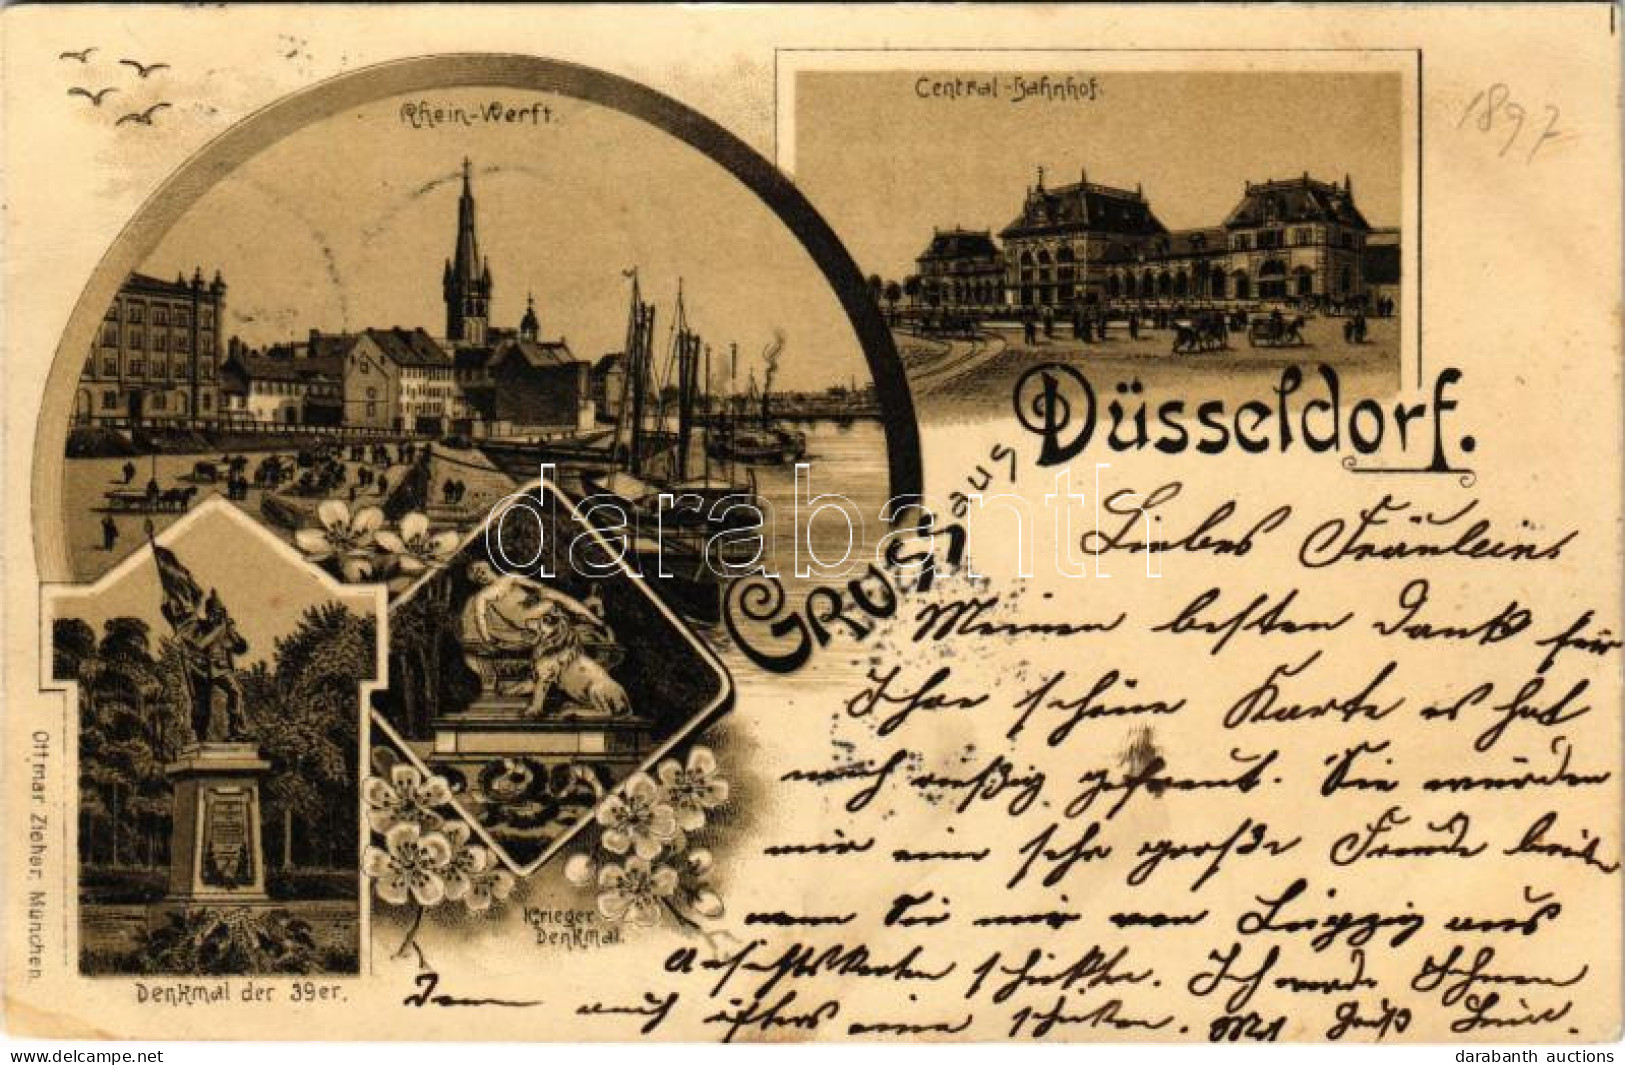 Rhein-Werft.
Central-Bahnhof.
1897
Gruss aus Düsseldorf.
darabanth
Liebes Fräulein,
Meinen besten Dank für
Ihre schöne Karte es hat
mich riesig gefreut. Sie würden
mir eine sehr große Freude breiten
wenn Sie mir von Leipzig aus
Ansichtskarten schickten. Ich werde Ihnen
Dann auch öfters eine schicken. Mit Gruß
Krieger
Denkmal.
Denkmal der 39er.
Ottmar Zieher, München.
delcampe.net
darabanth auctions